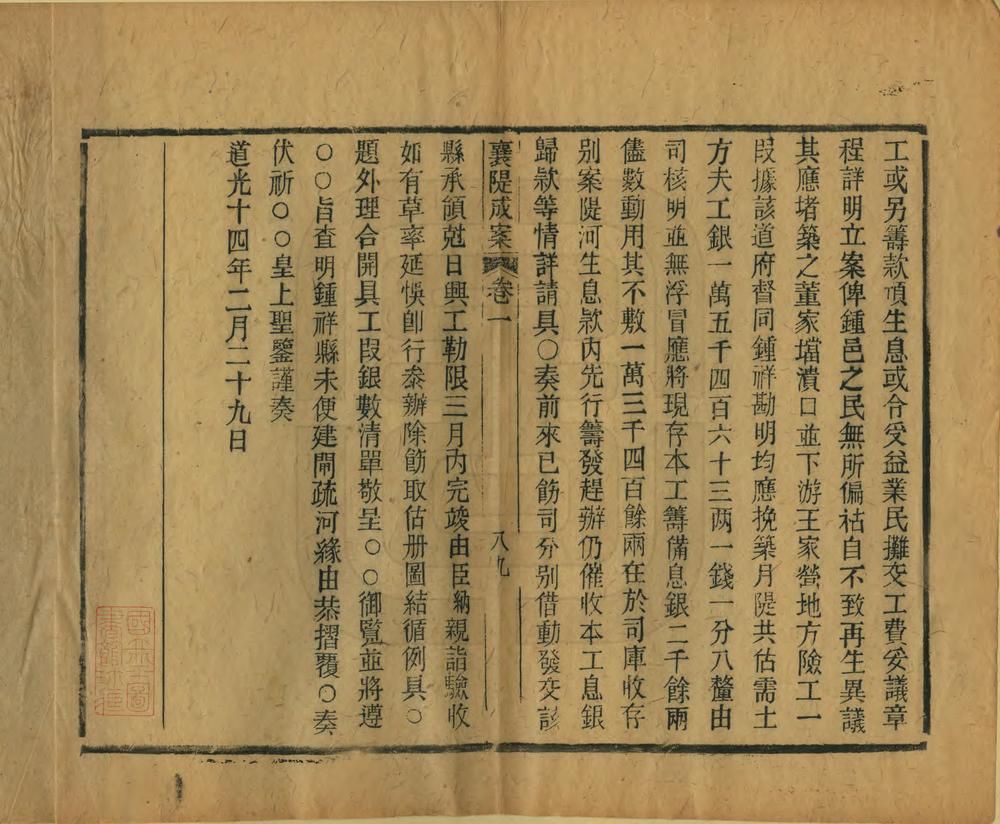 工或另籌款項生息或令受益業民攤交工費妥議章
程詳明立案俾鍾邑之民無所偏祜自不致再生異議
其應堵築之董家壋潰口並下游王家營地方險工一
段據該道府督同鍾祥勘明均應挽築月隄共估需土
方夫工銀一萬五千四百六十三两一錢一分八釐由
司核明並無浮冒應將現存本工籌備息銀二千餘兩
儘數動用其不敷一萬三千四百餘兩在於司庫收存
别案隄河生息款内先行籌發趕辦仍催收本工息銀
歸款等情詳請具〇奏前來已飭司分别借動發交該
襄隄成案 卷一 八九
縣承領尅日興工勒限三月内完竣由臣納親詣驗收
如有草率延悞卽行叅辦除飭取估册圖結循例具〇
題外理合開具工段銀數清單敬呈〇〇御覽並將遵
〇〇旨查明鍾祥縣未便建閘疏河緣由恭摺覆〇奏
伏祈〇〇皇上聖鑒謹奏
道光十四年二月二十九日
國立北平圖
書館所藏